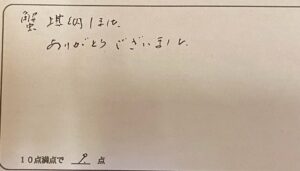 蟹 堪能しました。
ありがとうございました。
10点満点で 9 点